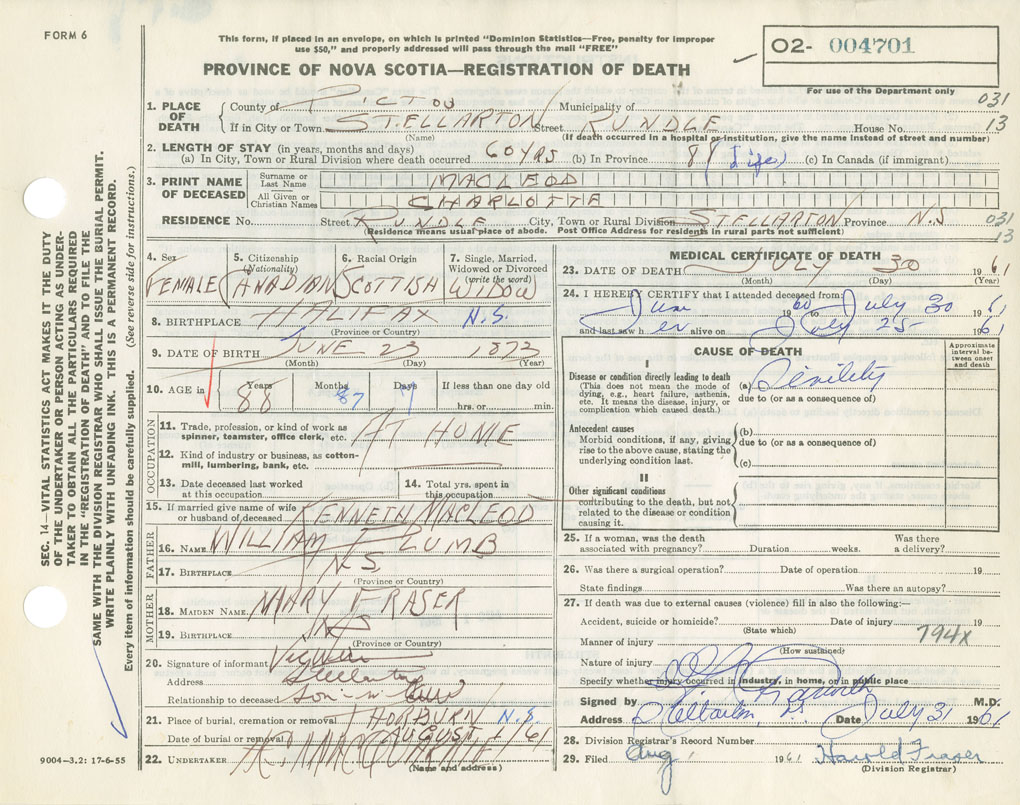 FORM 6
This form, if placed in an envelope, on which is printed "Dominion Statistics—Free, penalty for improper
use $50," and properly addressed will pass through the mail "FREE"
PROVINCE OF NOVA SCOTIA—REGISTRATION OF DEATH
02- 004701
For use of the Department only
1. PLACE OF DEATH County of PICTOU Municipality of 031
If in City or Town STELLARTON Street RUNDLE House No. 13
(Name) (If death occurred in a hospital or institution, give the name instead of street and number)
2. LENGTH OF STAY (in years, months and days)
(a) In City, Town or Rural Division where death occurred 60 YRS (b) In Province 88 (Life) (c) In Canada (if immigrant)
3. PRINT NAME OF DECEASED
Surname or Last Name MACLEOD
All Given or Christian Names CHARLOTTE
RESIDENCE No. Street RUNDLE City, Town or Rural Division STELLARTON Province N.S 031
(Residence means usual place of abode. Post Office Address for residents in rural parts not sufficient) 13
4. Sex FEMALE
5. Citizenship (Nationality) CANADIAN
6. Racial Origin SCOTTISH
7. Single, Married, Widowed or Divorced (write the word) WIDOW
8. BIRTHPLACE HALIFAX N.S.
(Province or Country)
9. DATE OF BIRTH JUNE 23 1873
(Month) (Day) (Year)
10. AGE in Years 88 Months 87 Days If less than one day old
hrs. or min.
OCCUPATION
11. Trade, profession, or kind of work as
spinner, teamster, office clerk, etc. AT HOME
12. Kind of industry or business, as cotton-
mill, lumbering, bank, etc.
13. Date deceased last worked
at this occupation
14. Total yrs. spent in
this occupation
15. If married give name of wife
or husband of deceased KENNETH MACLEOD
FATHER
16. NAME WILLIAM PLUMB
17. BIRTHPLACE N.S
(Province or Country)
MOTHER
18. MAIDEN NAME MARY FRASER
19. BIRTHPLACE N.S
(Province or Country)
20. Signature of informant
Address Stellarton
Relationship to deceased Son-in-law
21. Place of burial, cremation or removal N.S.
Date of burial or removal AUGUST 1/61
22. UNDERTAKER
(Name and address)
MEDICAL CERTIFICATE OF DEATH
23. DATE OF DEATH JULY 30 1961
(Month) (Day) (Year)
24. I HEREBY CERTIFY that I attended deceased from
1960 to July 30 1961
and last saw her alive on July 25 1961
CAUSE OF DEATH
Approximate interval between onset and death
I
Disease or condition directly leading to death
(This does not mean the mode of
dying, e.g., heart failure, asthenia,
etc. It means the disease, injury, or
complication which caused death.)
(a) Senility
due to (or as a consequence of)
Antecedent causes
Morbid conditions, if any, giving
rise to the above cause, stating the
underlying condition last.
(b)
due to (or as a consequence of)
(c)
II
Other significant conditions
contributing to the death, but not
related to the disease or condition
causing it.
25. If a woman, was the death
associated with pregnancy? Duration weeks. Was there
a delivery?
26. Was there a surgical operation? Date of operation 19
State findings Was there an autopsy?
27. If death was due to external causes (violence) fill in also the following:—
Accident, suicide or homicide? Date of injury 19
(State which) 794X
Manner of injury
(How sustained)
Nature of injury
Specify whether injury occurred in industry, in home, or in public place
Signed by M.D.
Address Stellarton Date July 31 1961
28. Division Registrar's Record Number
29. Filed Aug, 1961 Harold Fraser
(Division Registrar)
SEC. 14—VITAL STATISTICS ACT MAKES IT THE DUTY
OF THE UNDERTAKER OR PERSON ACTING AS UNDER-
TAKER TO OBTAIN ALL THE PARTICULARS REQUIRED
IN THE "REGISTRATION OF DEATH" AND TO FILE THE
SAME WITH THE DIVISION REGISTRAR WHO SHALL ISSUE THE BURIAL PERMIT.
WRITE PLAINLY WITH UNFADING INK. THIS IS A PERMANENT RECORD.
Every item of information should be carefully supplied. (See reverse side for instructions.)
9004—3.2: 17-6-55